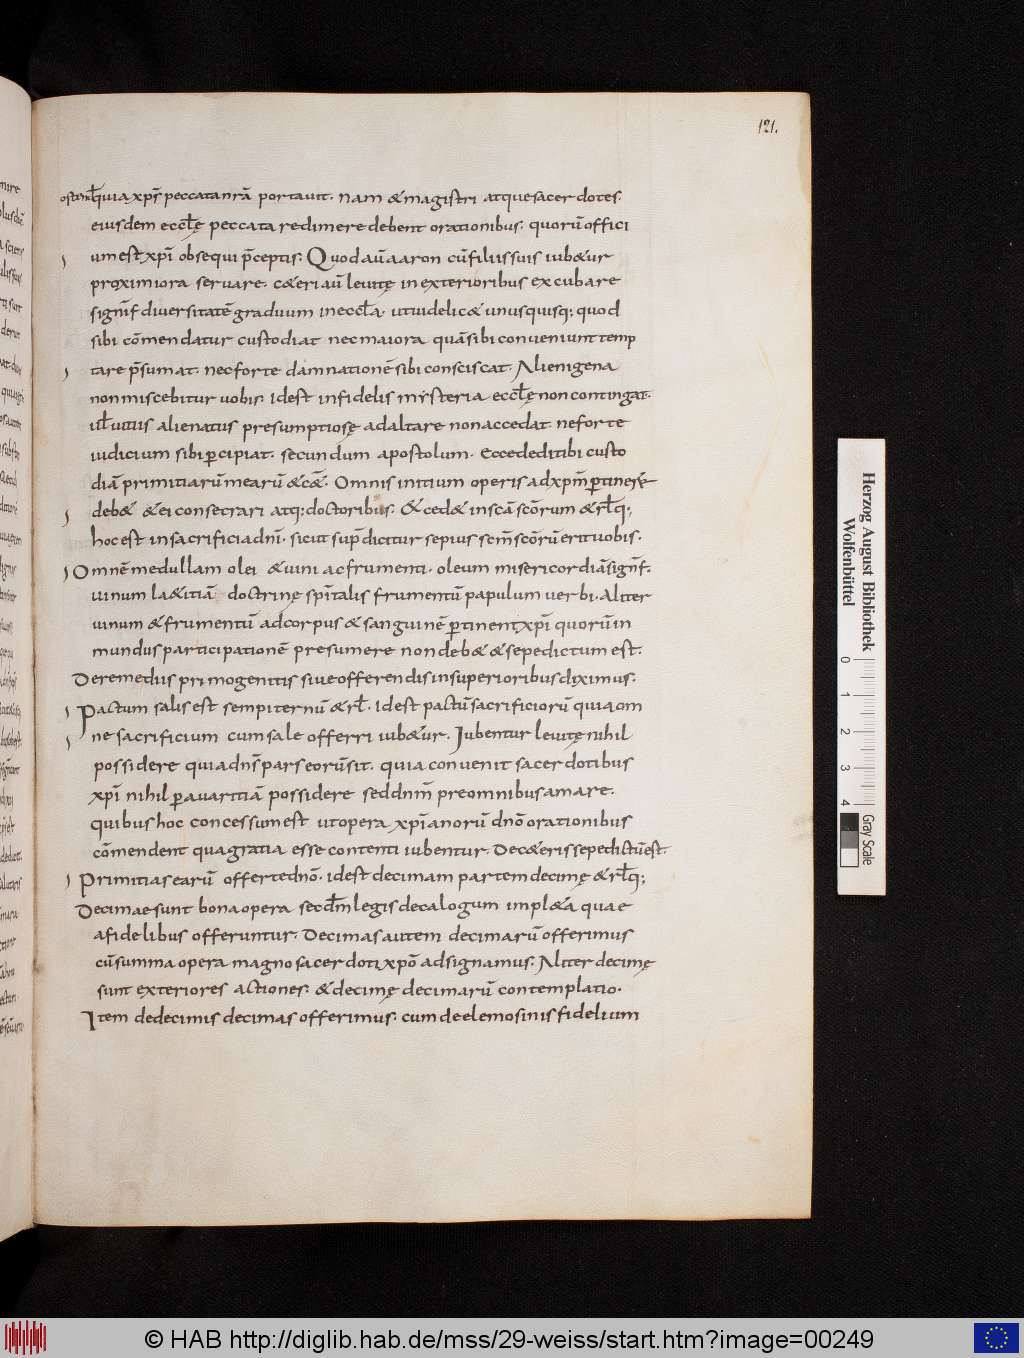 121.
quia xp̄s peccata nr̄a portauit. nam & magistri atque sacerdotes.
eiusdem eccl̄ę peccata redimere debent orationibus. quorū offici
um est xp̄i obsequi p̄ceptis. Quod aū aaron cū filiis suis iub&ur
proximiora seruare. c&eri aū leuitę in exterioribus excubare
signif̄ diuersitatē graduum in eccl̄a. ut uidelic& unusquisq; quod
sibi cōmendatur custodiat nec maiora quā sibi conueniunt temp
tare p̄sumat. nec forte damnationē sibi consciscat. Alienigena
non miscebitur uobis. idest infidelis mysteria eccl̄ę non contingat.
ul̄ uitiis alienatus presumptiosę ad altare non accedat. ne forte
iudicium sibi ꝑcipiat. secundum apostolum. Ecce dedi tibi custo
diā primitiarū mearū &cā. Omnis initium operis ad xpm̄ ꝑtinere
deb& & ei consecrari atq; doctoribus. & ced& in scā scōrum & rl̄q;
hoc est in sacrificia dnī. sicut sup̄ dicitur sepius scm̄ scōrū erit uobis.
Omnē medullam olei & uini ac frumenti. oleum misericordiā signif̄.
uinum la&itiā doctrinę spīritalis frumentū papulum uerbi. Aliter
uinum & frumentū ad corpus & sanguinē ꝑtinent xp̄i quorū in
mundus participationē presumere non deb& & sepe dictum est.
De remediis primogenitis siue offerendis in superioribus diximus.
Pactum salis est sempiternū & rl̄. idest pactū sacrificiorū quia om
ne sacrificium cum sale offerri iub&ur. Iubentur leuitę nihil
possidere quia dnš pars eorū sit. quia conuenit sacerdotibus
xp̄i nihil ꝑ auaritiā possidere sed dnm̄ pre omnibus amare.
quibus hoc concessum est ut opera xp̄ianorū dnō orationibus
cōmendent qua gratia esse contenti iubentur. De c&eris sepe dictū est.
Primitias earū offerte dnō. idest decimam partem decimę & rl̄q;
Decimae sunt bona opera secdm̄ legis decalogum impl&a quae
a fidelibus offeruntur. Decimas autem decimarū offerimus
cū summa opera magno sacerdoti xp̄o adsignamus. Aliter decimę
sunt exteriores actiones. & decimę decimarū contemplatio.
Item de decimis decimas offerimus. cum de elemosinis fidelium
Herzog August Bibliothek
Wolfenbüttel
0 1 2 3 4
Gray Scale
© HAB http://diglib.hab.de/mss/29-weiss/start.htm?image=00249